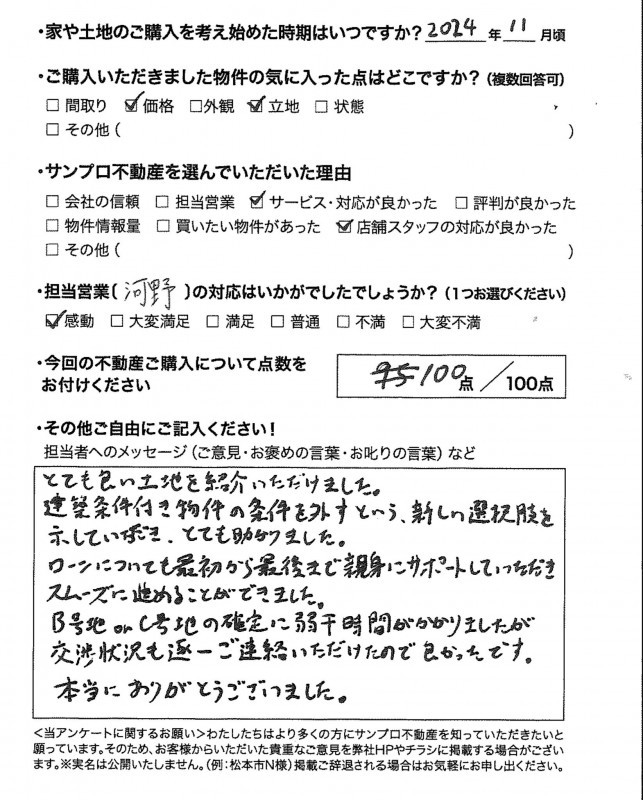 ・家や土地のご購入を考え始めた時期はいつですか？ 2024 年 11 月頃
・ご購入いただきました物件の気に入った点はどこですか？（複数回答可）
□ 間取り ☑ 価格 □ 外観 ☑ 立地 □ 状態
□ その他（ ）
・サンプロ不動産を選んでいただいた理由
□ 会社の信頼 □ 担当営業 ☑ サービス・対応が良かった □ 評判が良かった
□ 物件情報量 □ 買いたい物件があった ☑ 店舗スタッフの対応が良かった
□ その他（ ）
・担当営業（ 河野 ）の対応はいかがでしたでしょうか？（1つお選びください）
☑ 感動 □ 大変満足 □ 満足 □ 普通 □ 不満 □ 大変不満
・今回の不動産ご購入について点数を
お付けください
95 100 点 ／100点
・その他ご自由にご記入ください！
担当者へのメッセージ（ご意見・お褒めの言葉・お叱りの言葉）など
とても良い土地を紹介いただけました。
建築条件付き物件の条件を外すという、新しい選択肢を
示していただき、とても助かりました。
ローンについても最初から最後まで親身にサポートしていただき
スムーズに進めることができました。
B号地 or C号地の確定に弱干時間がかかりましたが
交渉状況も逐一ご連絡いただけたので良かったです。
本当にありがとうございました。
＜当アンケートに関するお願い＞わたしたちはより多くの方にサンプロ不動産を知っていただきたいと
願っています。そのため、お客様からいただいた貴重なご意見を弊社HPやチラシに掲載する場合がござい
ます。※実名は公開いたしません。（例：松本市N様）掲載ご辞退される場合はお気軽にお申し出ください。